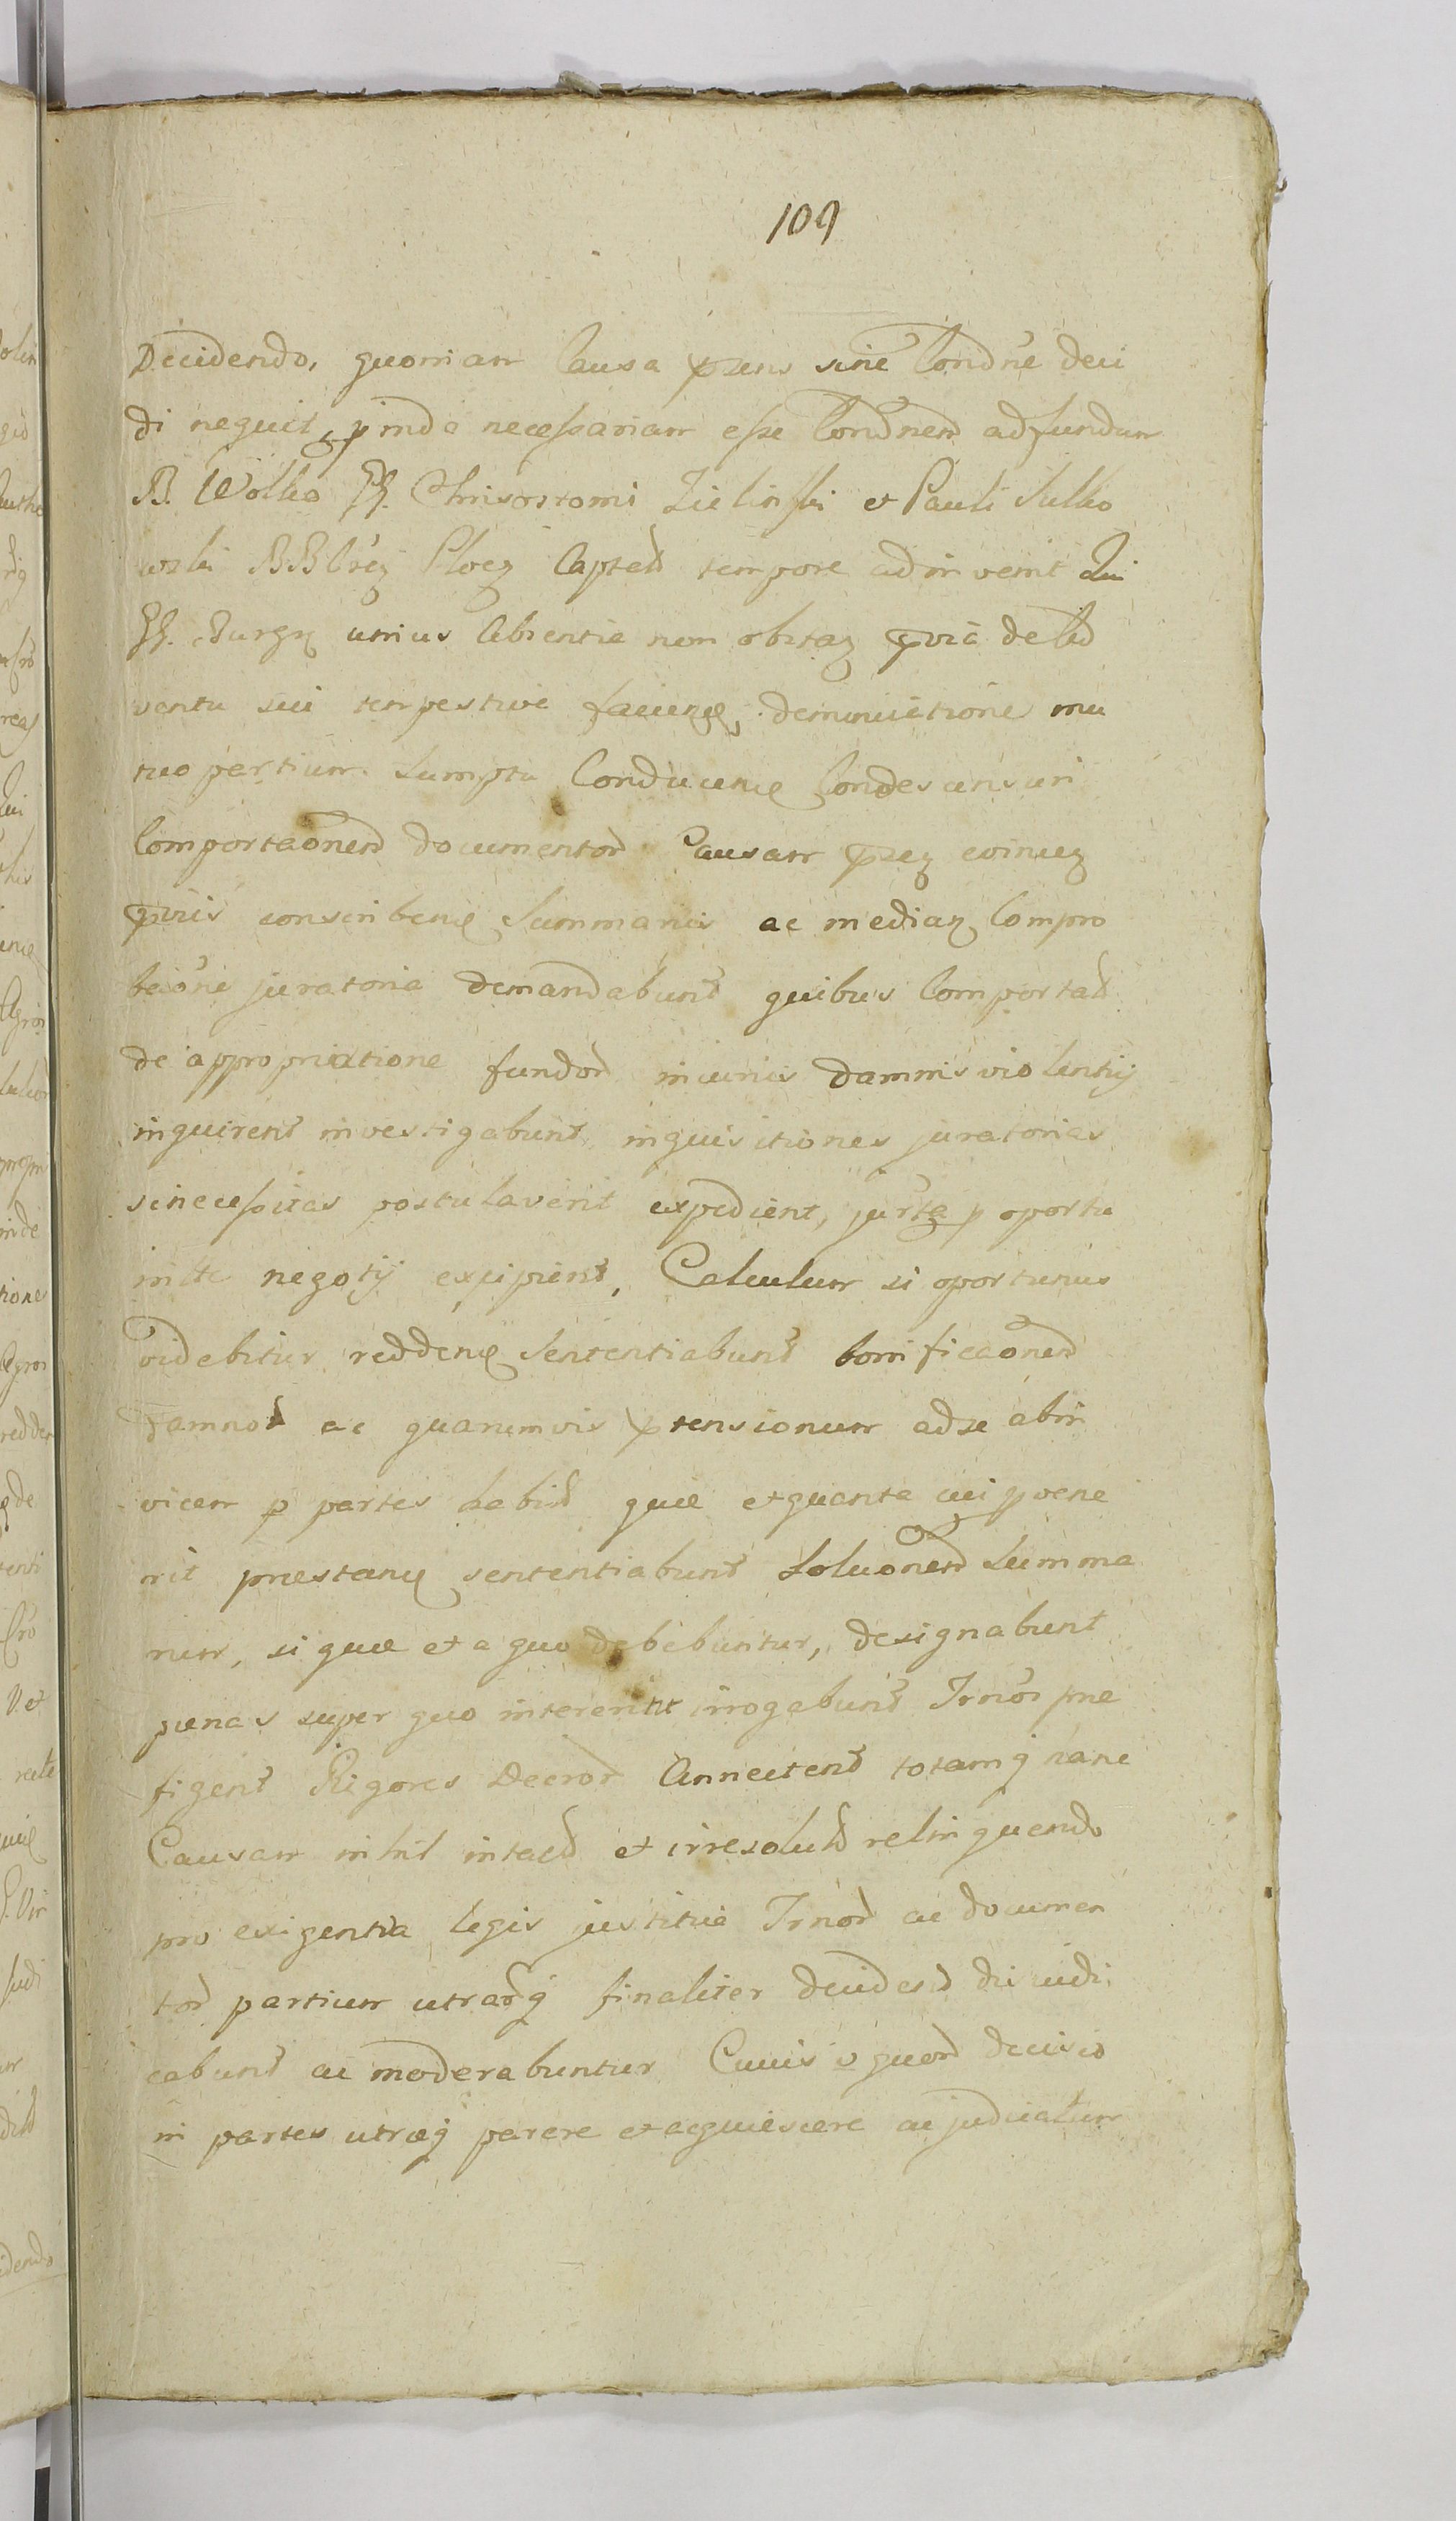 109
Decidendo, quoniam Causa pzens sine Condñe deci
di nequit, pinde necessariam esse Condnem ad fundum
B. Wolka GG. Chrisostomi Zielinski et Pauli Sulko
wski BB
tempore adinvenit Qui
GG. unius absentia non obstan pvia de Ad
ventu sui tempestive facien denunciatione mu
tuo partium Sumptu Conducen Condescensuri
Comportaonem documentor Causam pzen evincen
pviis conscriben Summariis ac median Compro
baõne juratoria demandabunt quibus Comportat
de appropriatione fundor iniuriis damnis violentijs
inquirent investigabunt inquisitiones juratorias
si necessitas postulaverit expedient, jurta p oportu
nitte negotij excipient, Calculum si oportunus
videbitur redden Sententiabunt bonificaonem
damnor ac quarumvis ptensionum ad se abin
vicem p partes habit quæ et quanta cui pvene
rit prestan sententiabunt Soluonem Summa
rum, si quæ et a quo debebuntur, designabunt
pænas super quo intererint irrogabunt Trnos pre
figent Rigores Decror Annectent totamq hanc
Causam nihil intact et irresolut relinquendo
pro exigentia legis justitiæ Trnor ac documen
tor partium utrarq finaliter decident diiudi
cabunt ac moderabuntur Cuius quod decisio
ni partes utræq parere et acquiescere ac judicatum